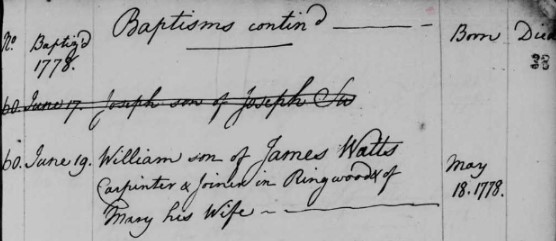 No. Baptiz'd 1778. Baptisms contin'd Born Died
60. June 17. Joseph son of Joseph
60. June 19. William son of James Watts
Carpenter & Joiner in Ringwood & of May
Mary his Wife 18. 1778.